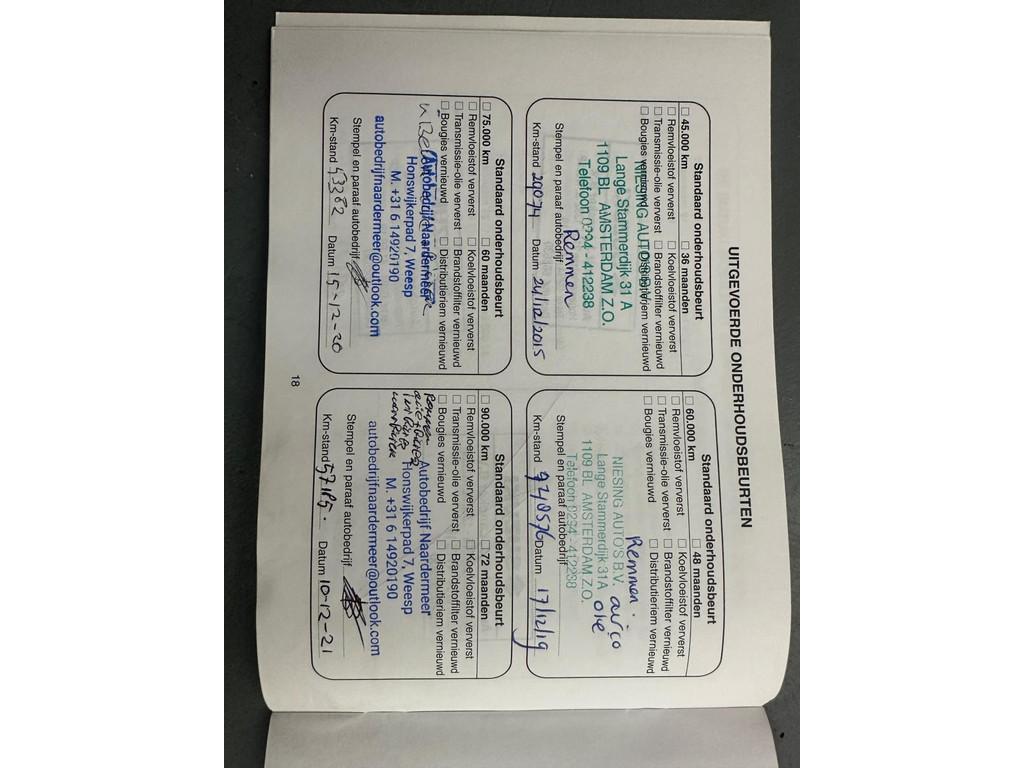 UITGEVOERDE ONDERHOUDSBEURTEN
Standaard onderhoudsbeurt
☐ 45.000 km ☐ 36 maanden
☐ Remvloeistof ververst ☐ Koelvloeistof ververst
☐ Transmissie-olie ververst ☐ Brandstoffilter vernieuwd
☐ Bougies vernieuwd ☐ Distributieriem vernieuwd
NIESING AUTO'S B.V.
Lange Stammerdijk 31 A
1109 BL AMSTERDAM Z.O.
Telefoon 0294 - 412238
Remmen
Stempel en paraaf autobedrijf
Km-stand 29074 Datum 24/12/2015
Standaard onderhoudsbeurt
☐ 60.000 km ☐ 48 maanden
☐ Remvloeistof ververst ☐ Koelvloeistof ververst
☐ Transmissie-olie ververst ☐ Brandstoffilter vernieuwd
☐ Bougies vernieuwd ☐ Distributieriem vernieuwd
Remmen. airco
olie
NIESING AUTO'S B.V.
Lange Stammerdijk 31A
1109 BL AMSTERDAM Z.O.
Telefoon 0294 - 412238
Stempel en paraaf autobedrijf
Km-stand Datum 17/12/19
Standaard onderhoudsbeurt
☐ 75.000 km ☐ 60 maanden
☐ Remvloeistof ververst ☐ Koelvloeistof ververst
☐ Transmissie-olie ververst ☐ Brandstoffilter vernieuwd
☐ Bougies vernieuwd ☐ Distributieriem vernieuwd
Autobedrijf Naardermeer
Honswijkerpad 7, Weesp
M. +31 6 14920190
autobedrijfnaardermeer@outlook.com
Stempel en paraaf autobedrijf
Km-stand 53382 Datum 15-12-20
Standaard onderhoudsbeurt
☐ 90.000 km ☐ 72 maanden
☐ Remvloeistof ververst ☐ Koelvloeistof ververst
☐ Transmissie-olie ververst ☐ Brandstoffilter vernieuwd
☐ Bougies vernieuwd ☐ Distributieriem vernieuwd
Remmen
Autobedrijf Naardermeer
Honswijkerpad 7, Weesp
M. +31 6 14920190
autobedrijfnaardermeer@outlook.com
Stempel en paraaf autobedrijf
Km-stand 57185. Datum 10-12-21
18